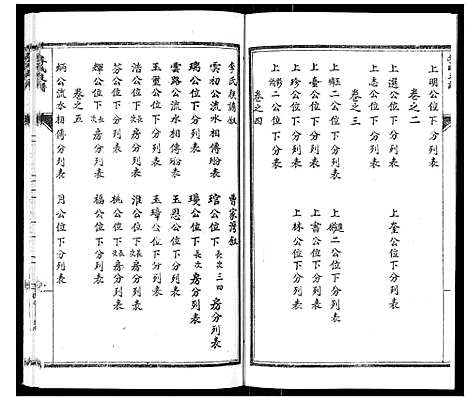 上明公位下分列表
卷之二
上選公位下分列表
上奎公位下分列表
上志公位下分列表
卷之三
上二公位下分列表
上二公位下分列表
上臺公位下分列表
上書公位下分列表
上珍公位下分列表
上林公位下分列表
二公位下分列表
卷之四
李氏族譜敘
曹家灣敘
雲初公流水相傳紛表
琯公位下長次三四房分列表
瑞公位下分列表
璦公位下長次房分列表
雲路公流水相傳紛表
玉璽公位下分列表
玉璋公位下分列表
浩公位下長次房分列表
淮公位下長次房分列表
芬公位下分列表
桃公位下長次房分列表
輝公位下長次房分列表
福公位下分列表
卷之五
炳公流水相傳分列表
月公位下分列表